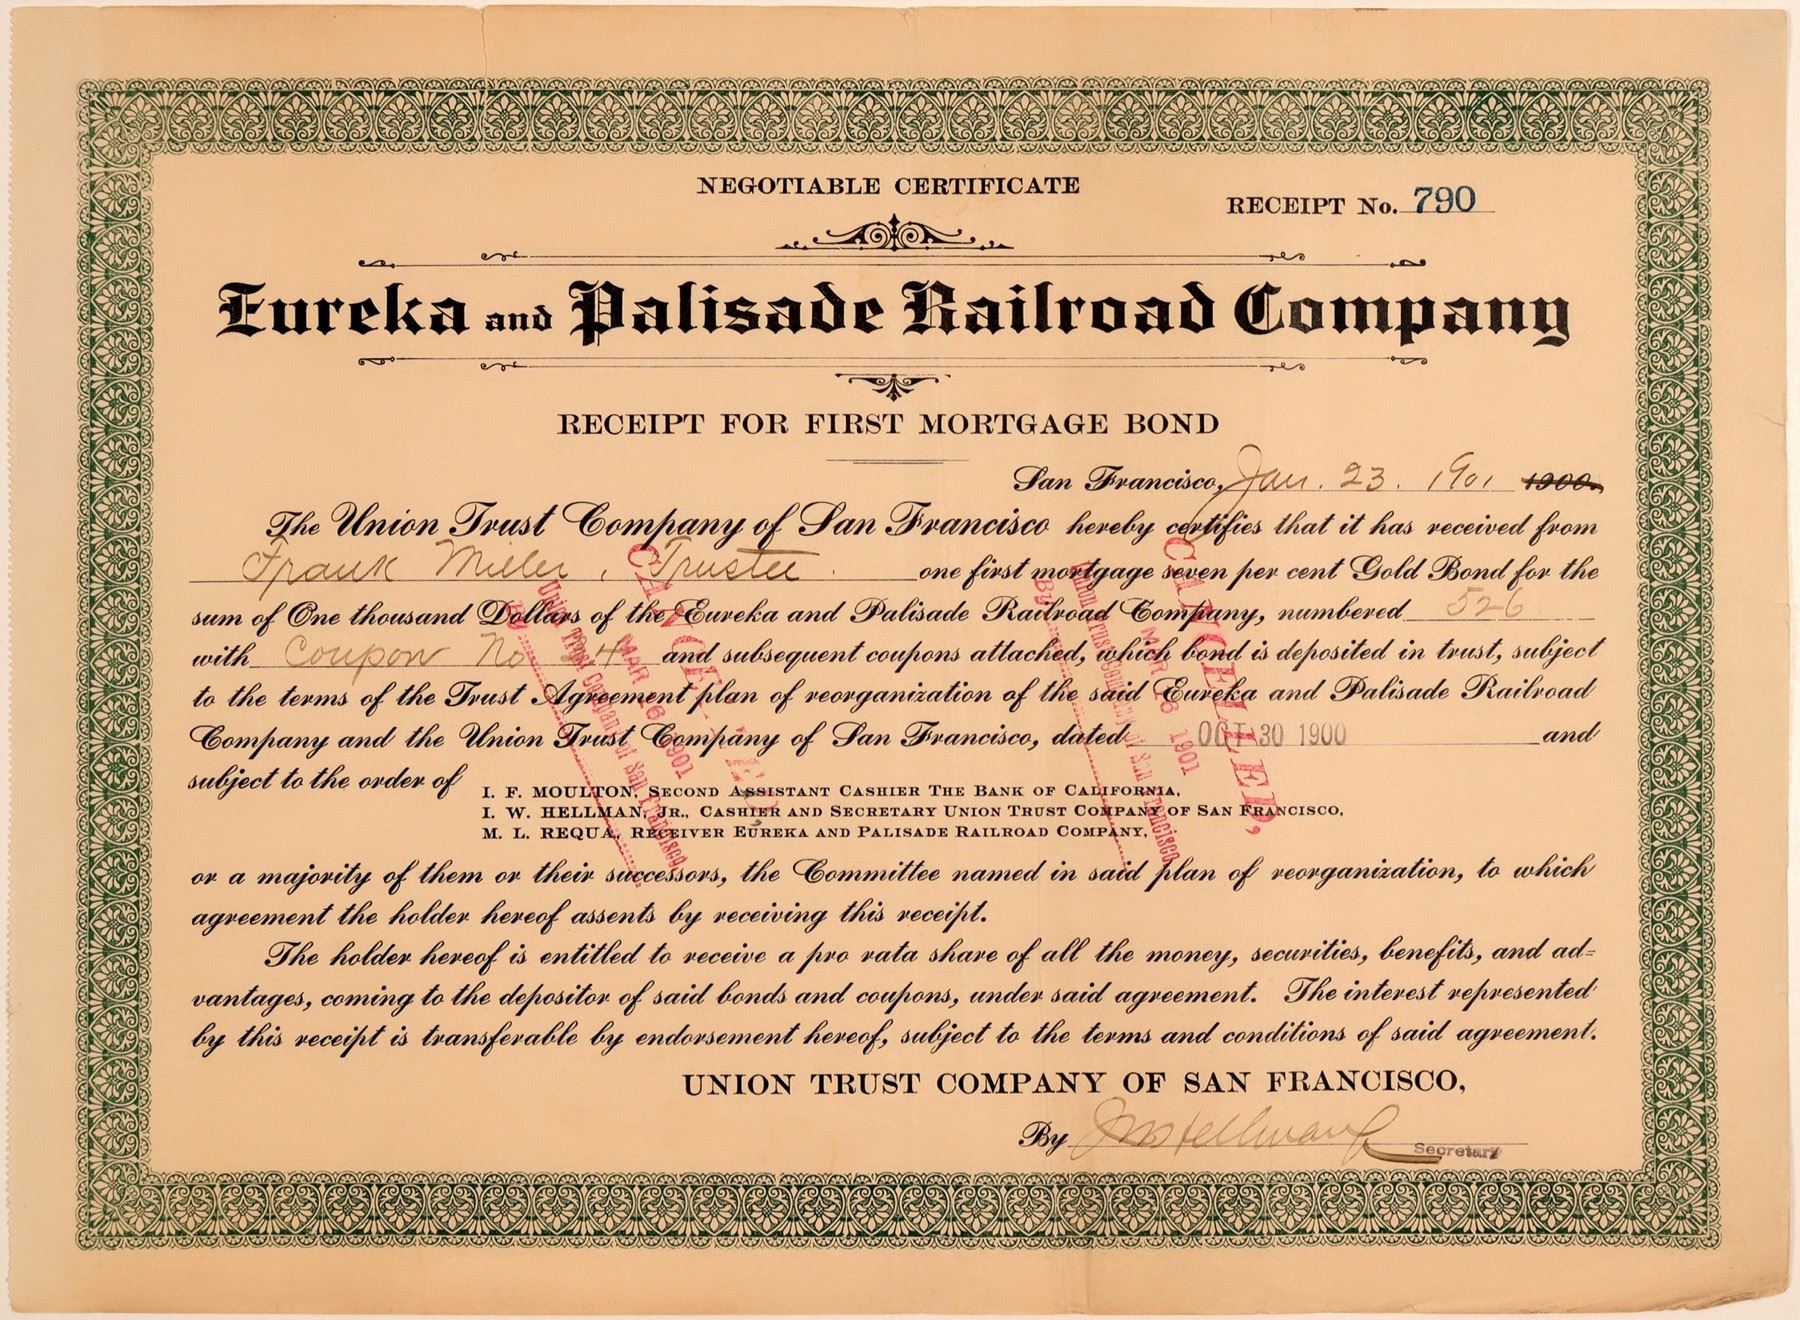 NEGOTIABLE CERTIFICATE
RECEIPT No. 790
Eureka and Palisade Railroad Company
RECEIPT FOR FIRST MORTGAGE BOND
San Francisco, Jan. 23. 1901 1900.
The Union Trust Company of San Francisco hereby certifies that it has received from
Frank Miller, Trustee. one first mortgage seven per cent Gold Bond for the
sum of One thousand Dollars of the Eureka and Palisade Railroad Company, numbered 526
with Coupon No 24 and subsequent coupons attached, which bond is deposited in trust, subject
to the terms of the Trust Agreement plan of reorganization of the said Eureka and Palisade Railroad
Company and the Union Trust Company of San Francisco, dated OCT 30 1900 and
subject to the order of
I. F. MOULTON, SECOND ASSISTANT CASHIER THE BANK OF CALIFORNIA,
I. W. HELLMAN, JR., CASHIER AND SECRETARY UNION TRUST COMPANY OF SAN FRANCISCO,
M. L. REQUA, RECEIVER EUREKA AND PALISADE RAILROAD COMPANY,
or a majority of them or their successors, the Committee named in said plan of reorganization, to which
agreement the holder hereof assents by receiving this receipt.
The holder hereof is entitled to receive a pro rata share of all the money, securities, benefits, and ad-
vantages, coming to the depositor of said bonds and coupons, under said agreement. The interest represented
by this receipt is transferable by endorsement hereof, subject to the terms and conditions of said agreement.
UNION TRUST COMPANY OF SAN FRANCISCO,
By Hellman Jr Secretary
CANCELLED,
MAR 1901
Union Trust Company of San Francisco
By
CANCELLED,
MAR 1901
Union Trust Company of San Francisco
By